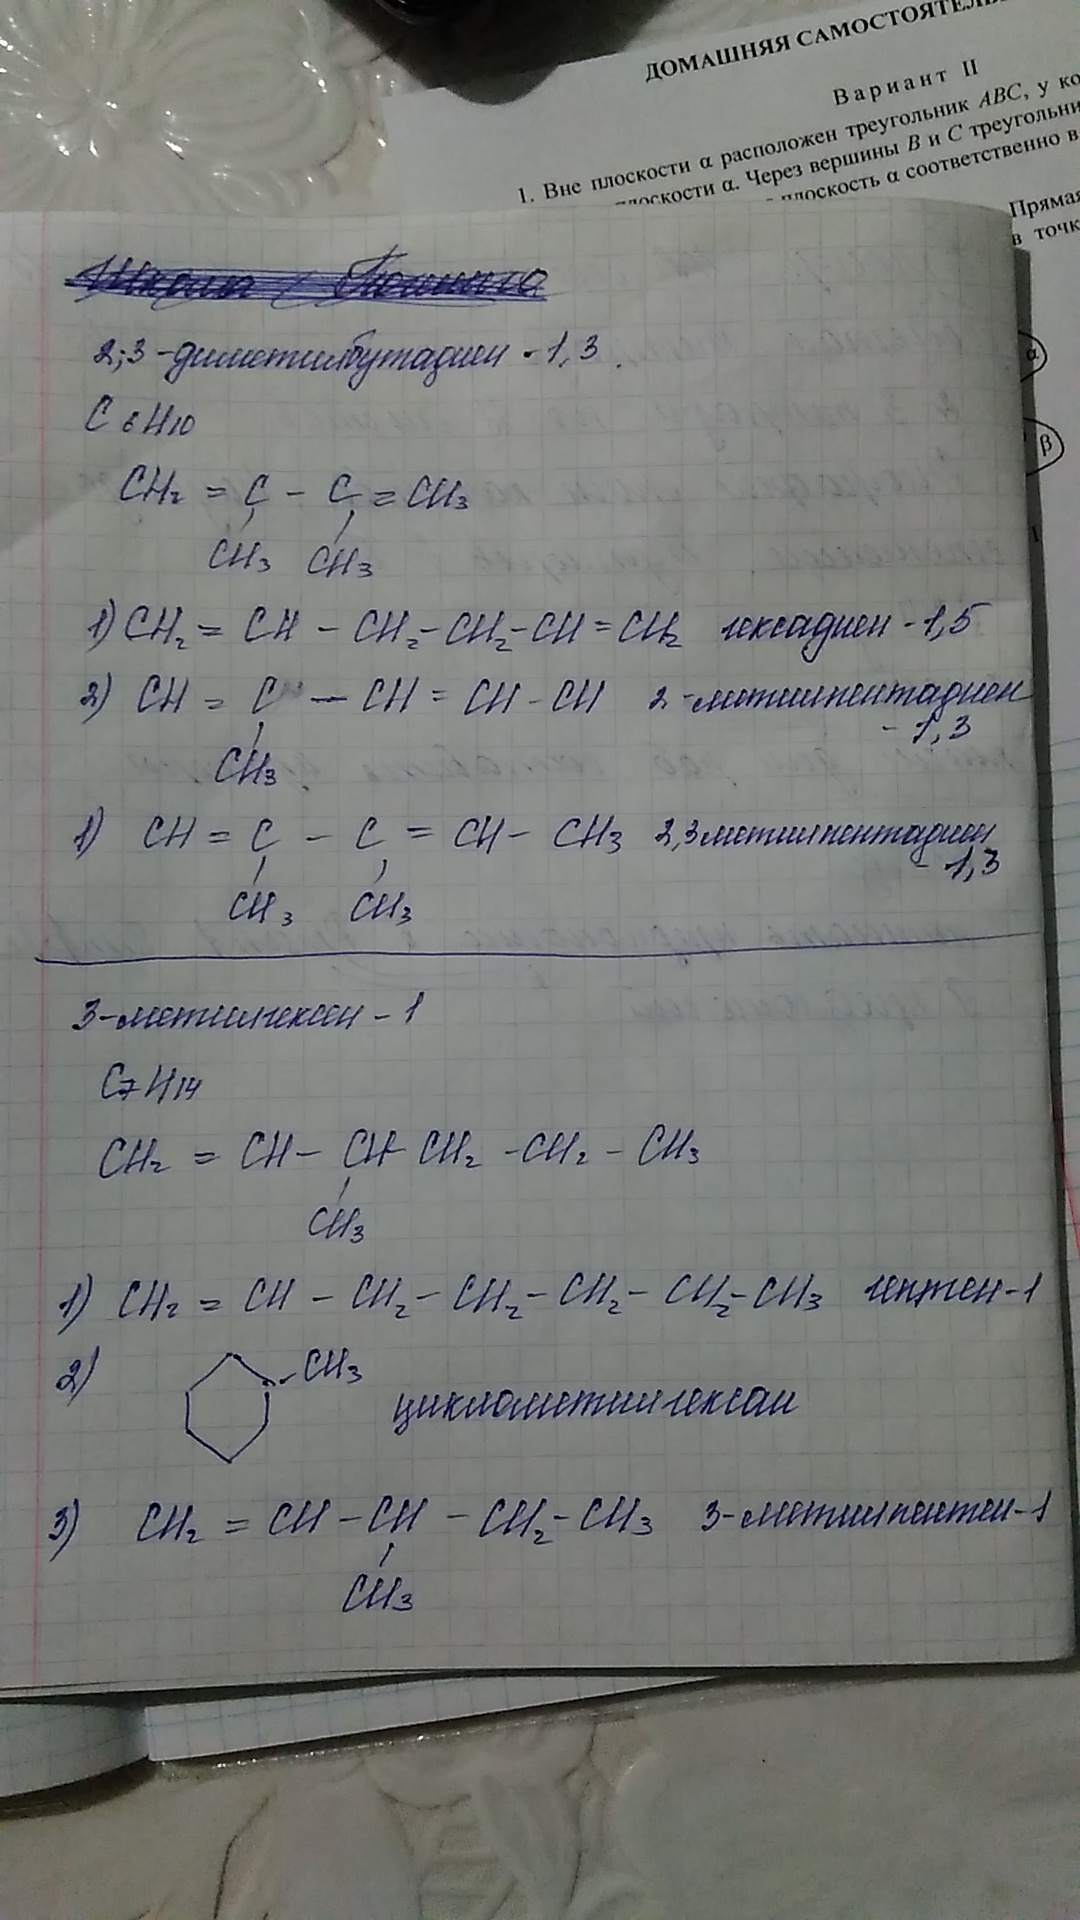 ДОМАШНЯЯ САМОСТОЯТЕЛЬ
Вариант II
1. Вне плоскости α расположен треугольник ABC, у ко
плоскости α. Через вершины B и C треугольни
плоскость α соответственно в
Прямая
в точк
α
β
2;3-диметилбутадиен-1,3.
C6H10
CH2 = C - C = CH3
CH3 CH3
1) CH2 = CH - CH2 - CH2 - CH = CH2 гексадиен-1,5
2) CH = C - CH = CH - CH 2-метилпентадиен
-1,3
CH3
1) CH = C - C = CH - CH3 2,3метилпентадиен
-1,3
CH3 CH3
3-метилгексен-1
C7H14
CH2 = CH - CH - CH2 - CH2 - CH3
CH3
1) CH2 = CH - CH2 - CH2 - CH2 - CH2 - CH3 гептен-1
2) CH3
циклометилгексан
3) CH2 = CH - CH - CH2 - CH3 3-метилпентен-1
CH3